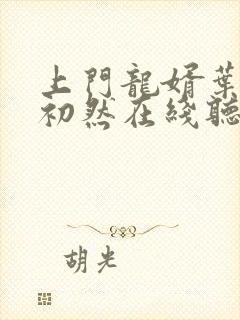 上門龍婿葉
初然在綫聽
胡光